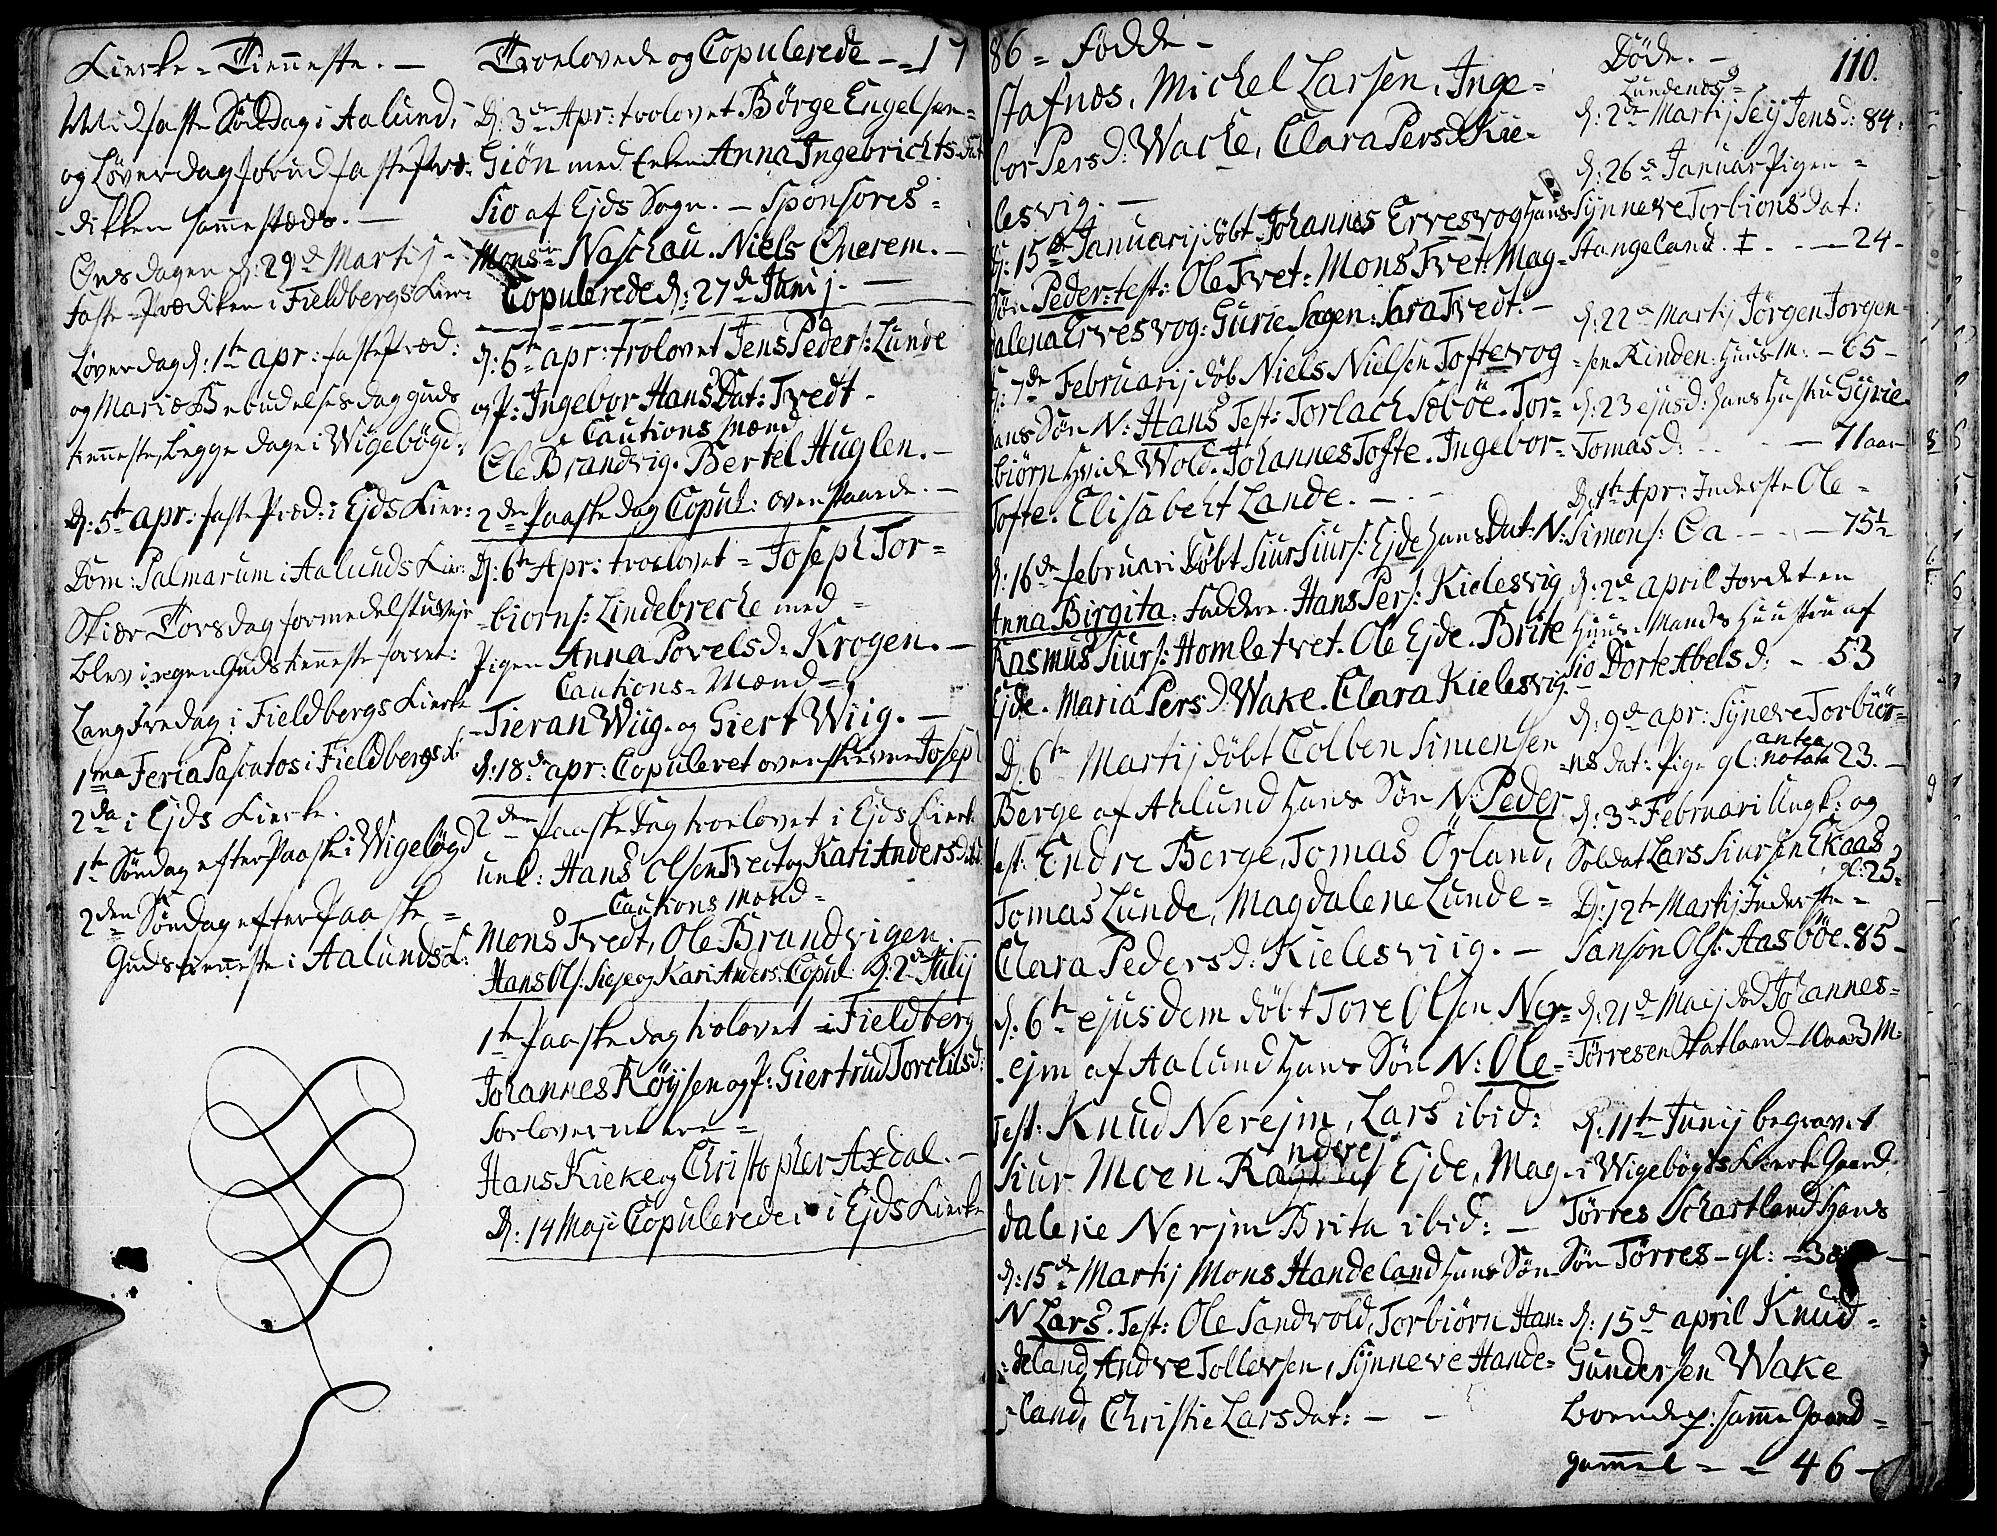 Kierke-Tienneste. —
Midfaste Søndag i Aalund,
og Løverdag forud fastePræ-
-diken sammestæds. —
Onsdagen d: 29de Martij -
faste-Prædiken i Fieldbergs Kier:
Løverdag d: 1te apr: fastePræd:
og Mariæ Bebudelses dag guds
tienneste, begge dage i Wigebögd:
d: 5te apr: faste Præd: i Ejds Kier:
Dom: Palmarum i Aalunds Kier:
Skiær Torsdag formedelst uvejr
blev ingen Guds tienneste forret:
Langfredag i Fieldbergs Kierke
1ma Feria Pascatos i Fieldbergs K:
2da i Ejds Kierke.
1te Søndag efter Paaske i Wigebögd
2den Søndag efter Paaske -
Gudstienneste i Aalunds K:
Troelovede og Copulerede - = 17
D: 3de Apr: trolovet Börge Engelsen-
Giön med Enken Anna Ingebrichts dat
Sio af Ejds Sogn. - Sponsores -
Monsr Naschau. Niels Qverem. -
Copulerede d: 27de Junij. —
d: 5te apr: trolovet Jens Peders: Lunde
og P: Ingebor Hans Dat: Tvedt -
Cautions Mænd
Ole Brandvig. Bertel Huglen. -
2den Paaske dag Copul: ovenstaaende. -
D: 6te Apr: troelovet = Joseph Tor=
-biorns: Lindebrecke med =
Pigen Anna Povelsd: Krogen. -
Cautions-Mænd =
-Tieran Wiig. og Giert Wiig. —
d: 18de apr: Copuleret ovenskrevne Joseph
2den Paaske dag troelovet i Ejds Kierke
unk: Hans Olsen Tvedt og Kari Anders dat
Cautions Mænd =
Mons Tvedt, Ole Brandvigen
Hans Ols: Siese og Kari Anders: Copul: D: 2de Julij
1te Paaske dag trolovet i Fieldberg
Johannes Röysen og P: Giertrud Torckilsd:
Forloverne ere =
Hans Kieke og Christopher Axdal. -
D: 14 Maji Copulerede i Ejds Kierke
86 = Födde -
Stafnes, Michel Larsen, Inge=
bor Persd: Wacke, Clara Persd Kie-
lesvig. —
d: 15de Januarij döbt Johannes Ervesvog Hans
Sön Peder: test: Ole Tvet: Mons Tvet: Mag-
dalena Ervesvog: Gurie Sagen: Sara Tvedt. -
d: 7de Februarij döb Niels Nielsen Toftevog
Hans Sön N: Hans Test: Torlach Sæböe. Tor=
biörn Hvide Wold. Johannes Tofte. Ingebor=
Tofte. Elisabeht Lande. — -
d: 16de februari Döbt Siur Siurs: Ejde hans Dat: N:
Anna Birgita. Faddere. Hans Pers: Kielesvig
Rasmus Siurs: Homletvet. Ole Ejde. Brite
Ejde. Maria Persd: Wake. Clara Kielesvig.
D: 6te Martij döbt Colben Simensen
Berge af Aalund Hans Sön N: Peder
test: Endre Berge, Tomas Örland,
Tomas Lunde, Magdalene Lunde =
Clara Pedersd: Kielesviig. —
d: 6te ejusdem döbt Tore Olsen Ner=
-ejm af Aalund Hans Sön N: Ole=
Test: Knud Nerejm, Lars ibid:
Siur Moen. Ragndvej Ejde, Mag
dalene Nerjm Brita ibid: —
d: 15de Martij Mons Handeland Hans Sön
N Lars. Test: Ole Sandvold, Torbiörn Han=
-deland, Andve Tollevsen, Synneve Hande=
land, Christie Larsdat: — -
Döde. -
110.
Lundenæs
d: 2de Martij Seij Jensd: 84.
d: 26de Januar Pigen -
Synneve Torbions Dat:
Stangeland. ‡. - - 24 -
d: 22de Martij Jörgen Jorgen
-sen Kinden. Huusm: - 65 -
d: 23 ejusd: Hans Hustru Gyrie
Tomasd: - - — 71 aar
D: 1te Apr: Inderste Ole -
Simons: Ca - - - 75½
d: 2de april Jordet en
Huus-Mands Huustru af
Sio Dorte Abelsd: - 53
d: 9de apr: Syneve Torbiör-
-ns dat: Pige gl: antea notata 23. -
d: 3de Februari Ungk: og
Soldat Lars Siursen Ekaas
gl: 25=
D: 12te Martij Inderste -
Sanson Ols: Aasböe. 85 -
d: 21de Maij död Johannes =
=Törresen Skatland 10 aar 3 M:
d: 11te Junij begravet
i Wigebögds Kierke Gaard
Törres Schartland Hans
Sön Törres - gl: =
d: 15de april Knud =
Gundersen Wake
boende p: samme Gaard =
gammel = = 46 -